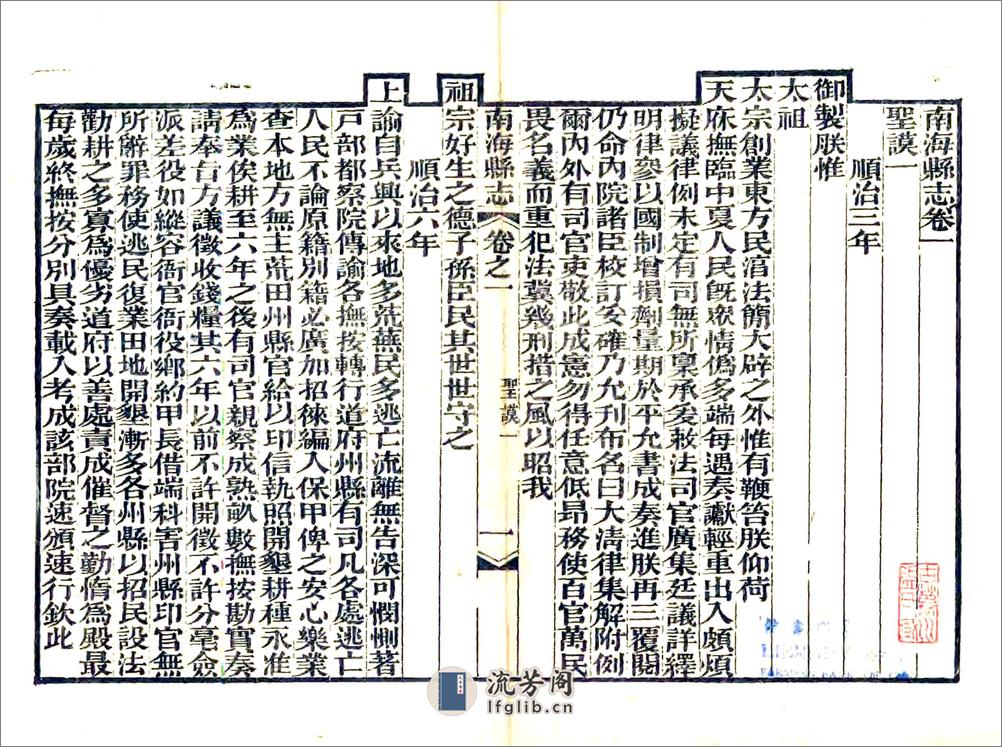 南海縣志卷一
聖謨一
順治三年
御製朕惟
太祖
太宗創業東方民湻法簡大辟之外惟有鞭笞朕仰荷
天庥撫臨中夏人民旣眾情僞多端每遇奏讞輕重出入頗煩
擬議律例未定有司無所稟承爰敕法司官廣集廷議詳繹
明律參以國制增損劑量期於平允書成奏進朕再三覆閱
仍命內院諸臣校訂妥確乃允刊布名曰大淸律集解附例
爾內外有司官吏敬此成憲勿得任意低昻務使百官萬民
畏名義而重犯法冀幾刑措之風以昭我
南海縣志
卷之一
聖謨一
一
祖宗好生之德子孫臣民其世世守之
順治六年
上諭自兵興以來地多荒蕪民多逃亡流離無告深可憫惻著
戸部都察院傳諭各撫按轉行道府州縣有司凡各處逃亡
人民不論原籍別籍必廣加招徠編入保甲俾之安心樂業
查本地方無主荒田州縣官給以印信執照開墾耕種永准
爲業俟耕至六年之後有司官親察成熟畝數撫按勘實奏
請奉旨方議徵收錢糧其六年以前不許開徵不許分毫僉
派差役如縱容衙官衙役鄉約甲長借端科害州縣印官無
所辭罪務使逃民復業田地開墾漸多各州縣以招民設法
勸耕之多寡爲優劣道府以善處責成催督之勤惰爲殿最
每歲終撫按分別具奏載入考成該部院速頒速行欽此
流芳阁
lfglib.cn